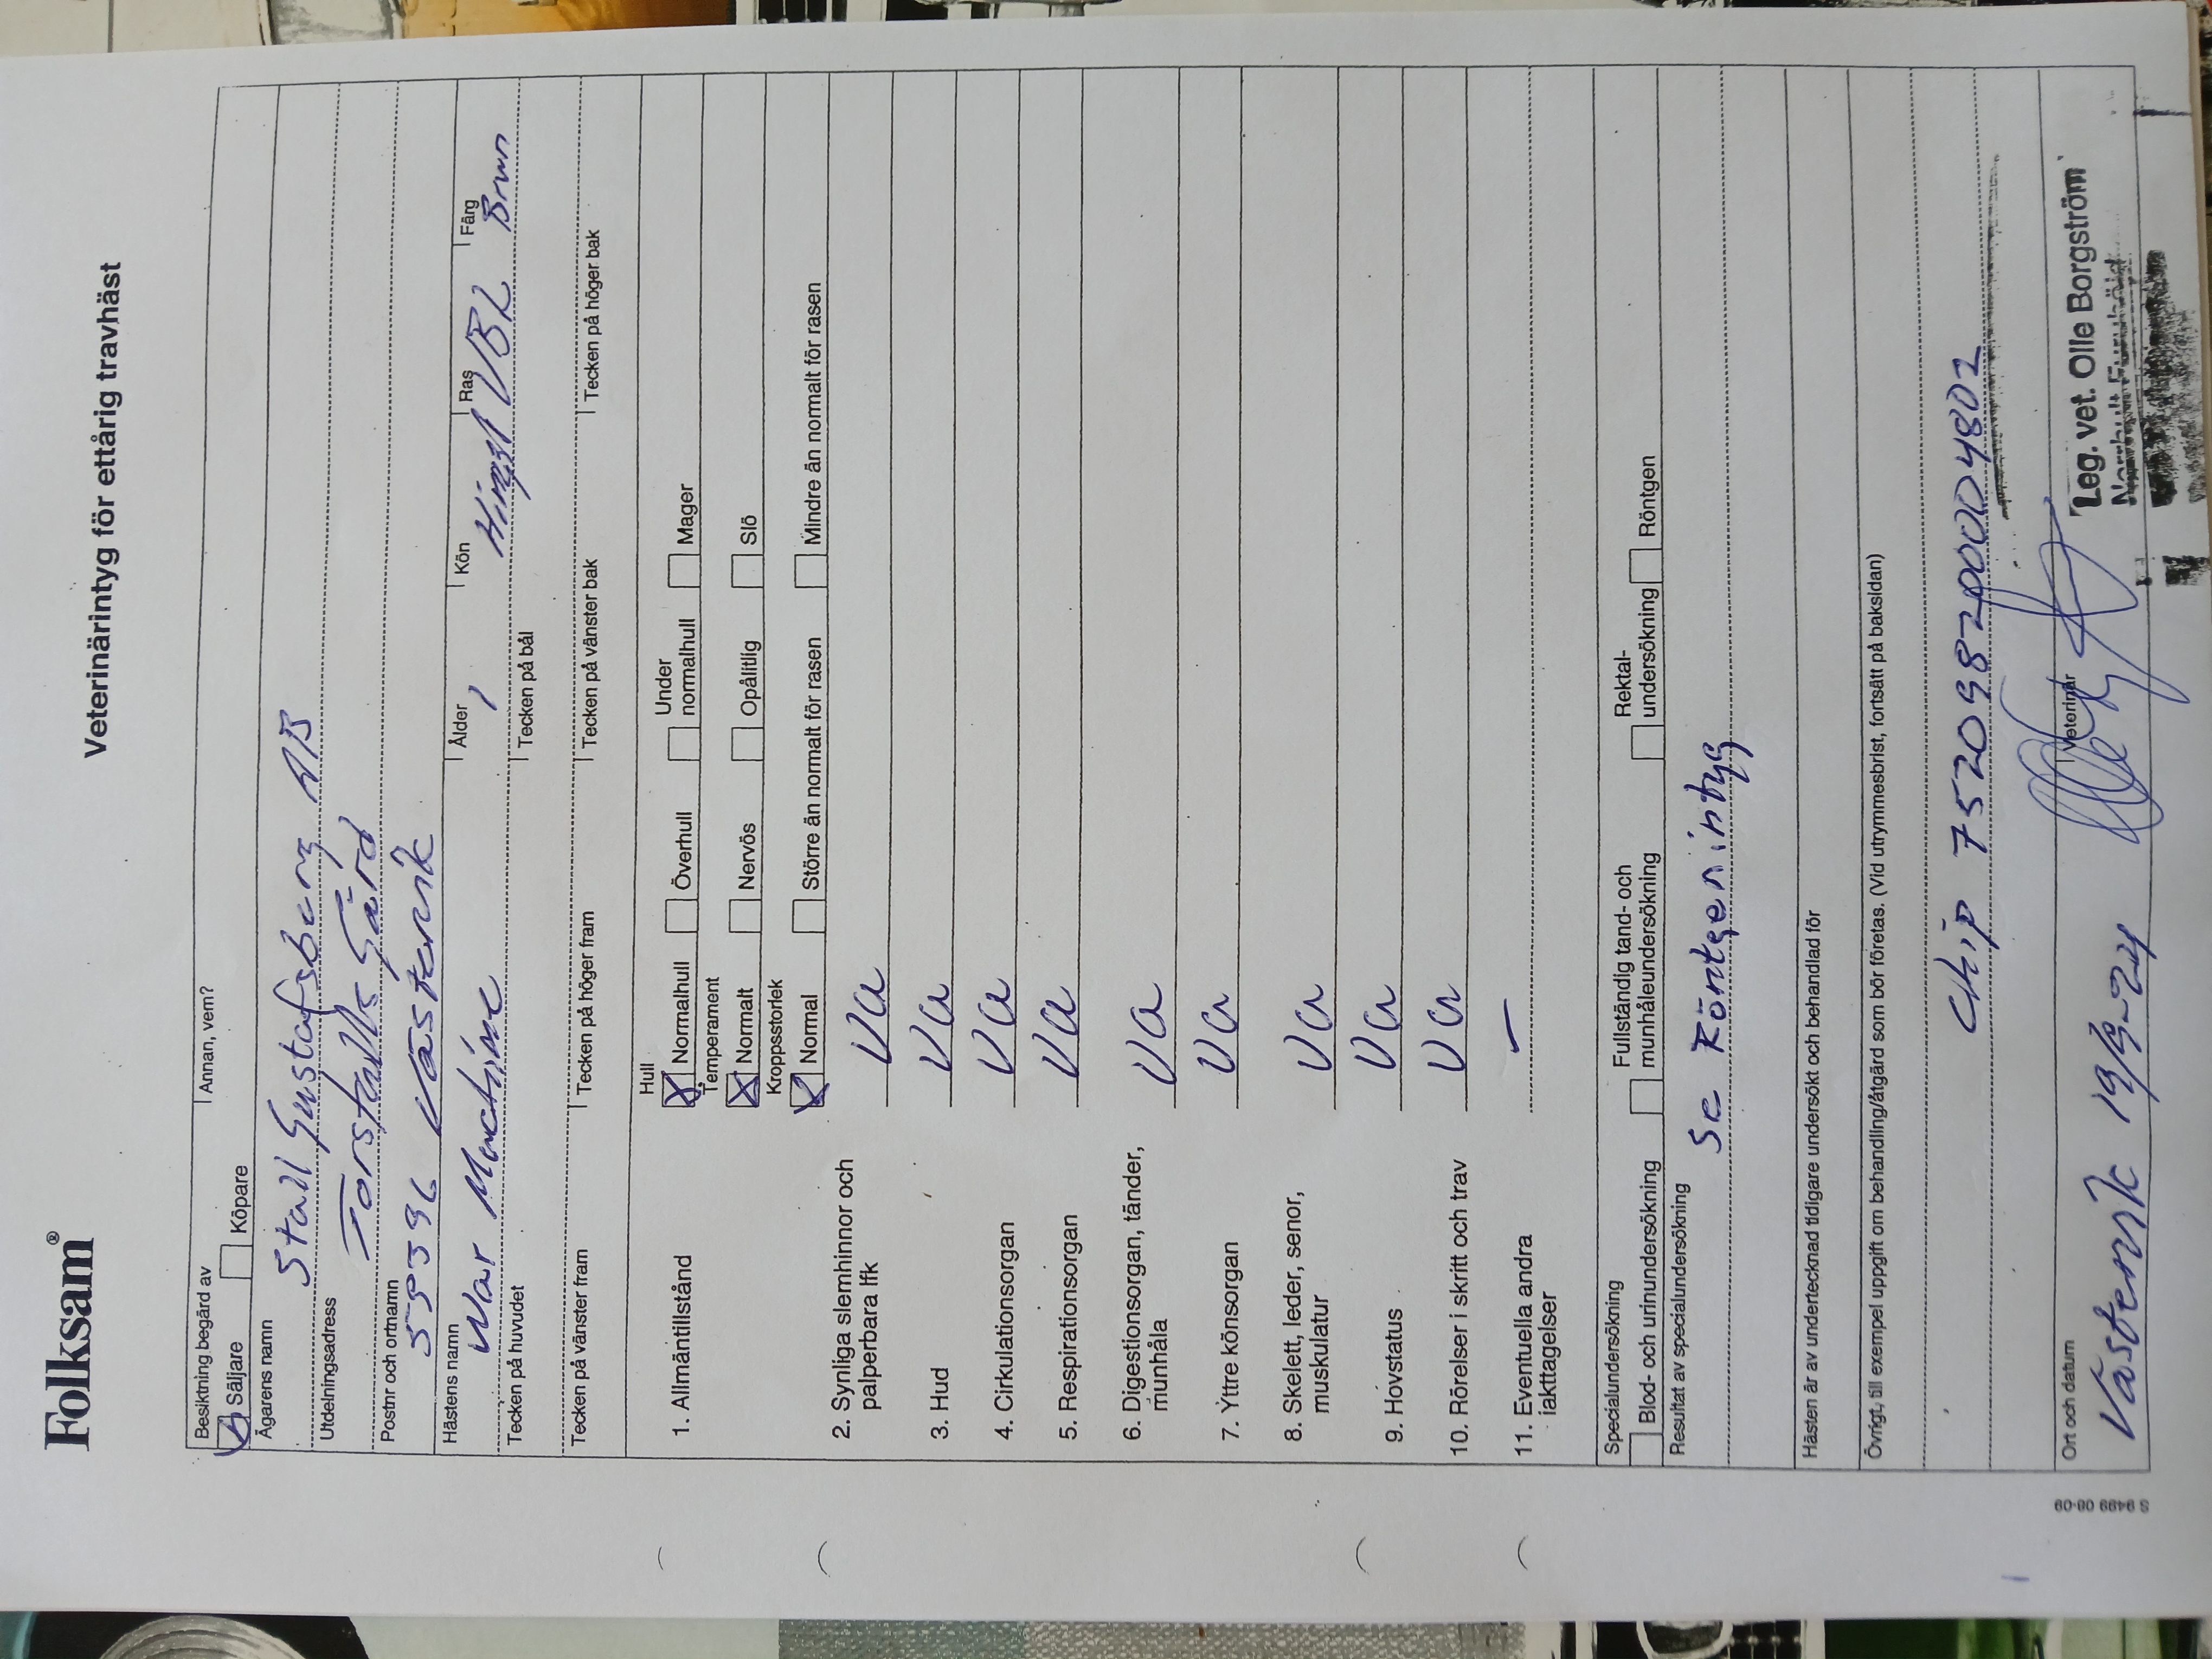 Folksam®
Veterinärintyg för ettårig travhäst
Besiktning begärd av
Säljare Köpare Annan, vem?
Ägarens namn
Stall Gustafsberg AB
Utdelningsadress
Torstalls Gård
Postnr och ortnamn
59396 Västervik
Hästens namn Ålder Kön Ras Färg
War Machine 1 Hingst VBL Brun
Tecken på huvudet Tecken på bål
Tecken på vänster fram Tecken på höger fram Tecken på vänster bak Tecken på höger bak
1. Allmäntillstånd
Hull
Normalhull Överhull Under normalhull Mager
Temperament
Normalt Nervös Opålitlig Slö
Kroppsstorlek
Normal Större än normalt för rasen Mindre än normalt för rasen
2. Synliga slemhinnor och
palperbara lfk Ua
3. Hud Ua
4. Cirkulationsorgan Ua
5. Respirationsorgan Ua
6. Digestionsorgan, tänder,
munhåla Ua
7. Yttre könsorgan Ua
8. Skelett, leder, senor,
muskulatur Ua
9. Hovstatus Ua
10. Rörelser i skritt och trav Ua
11. Eventuella andra
iakttagelser –
Specialundersökning
Blod- och urinundersökning Fullständig tand- och munhåleundersökning Rektal-undersökning Röntgen
Resultat av specialundersökning
Se Röntgenintyg
Hästen är av undertecknad tidigare undersökt och behandlad för
Övrigt, till exempel uppgift om behandling/åtgärd som bör företas. (Vid utrymmesbrist, fortsätt på baksidan)
Chip 752098200004802
Ort och datum Veterinär
Västervik 19/9-24
Leg. vet. Olle Borgström
S 9499 08-09